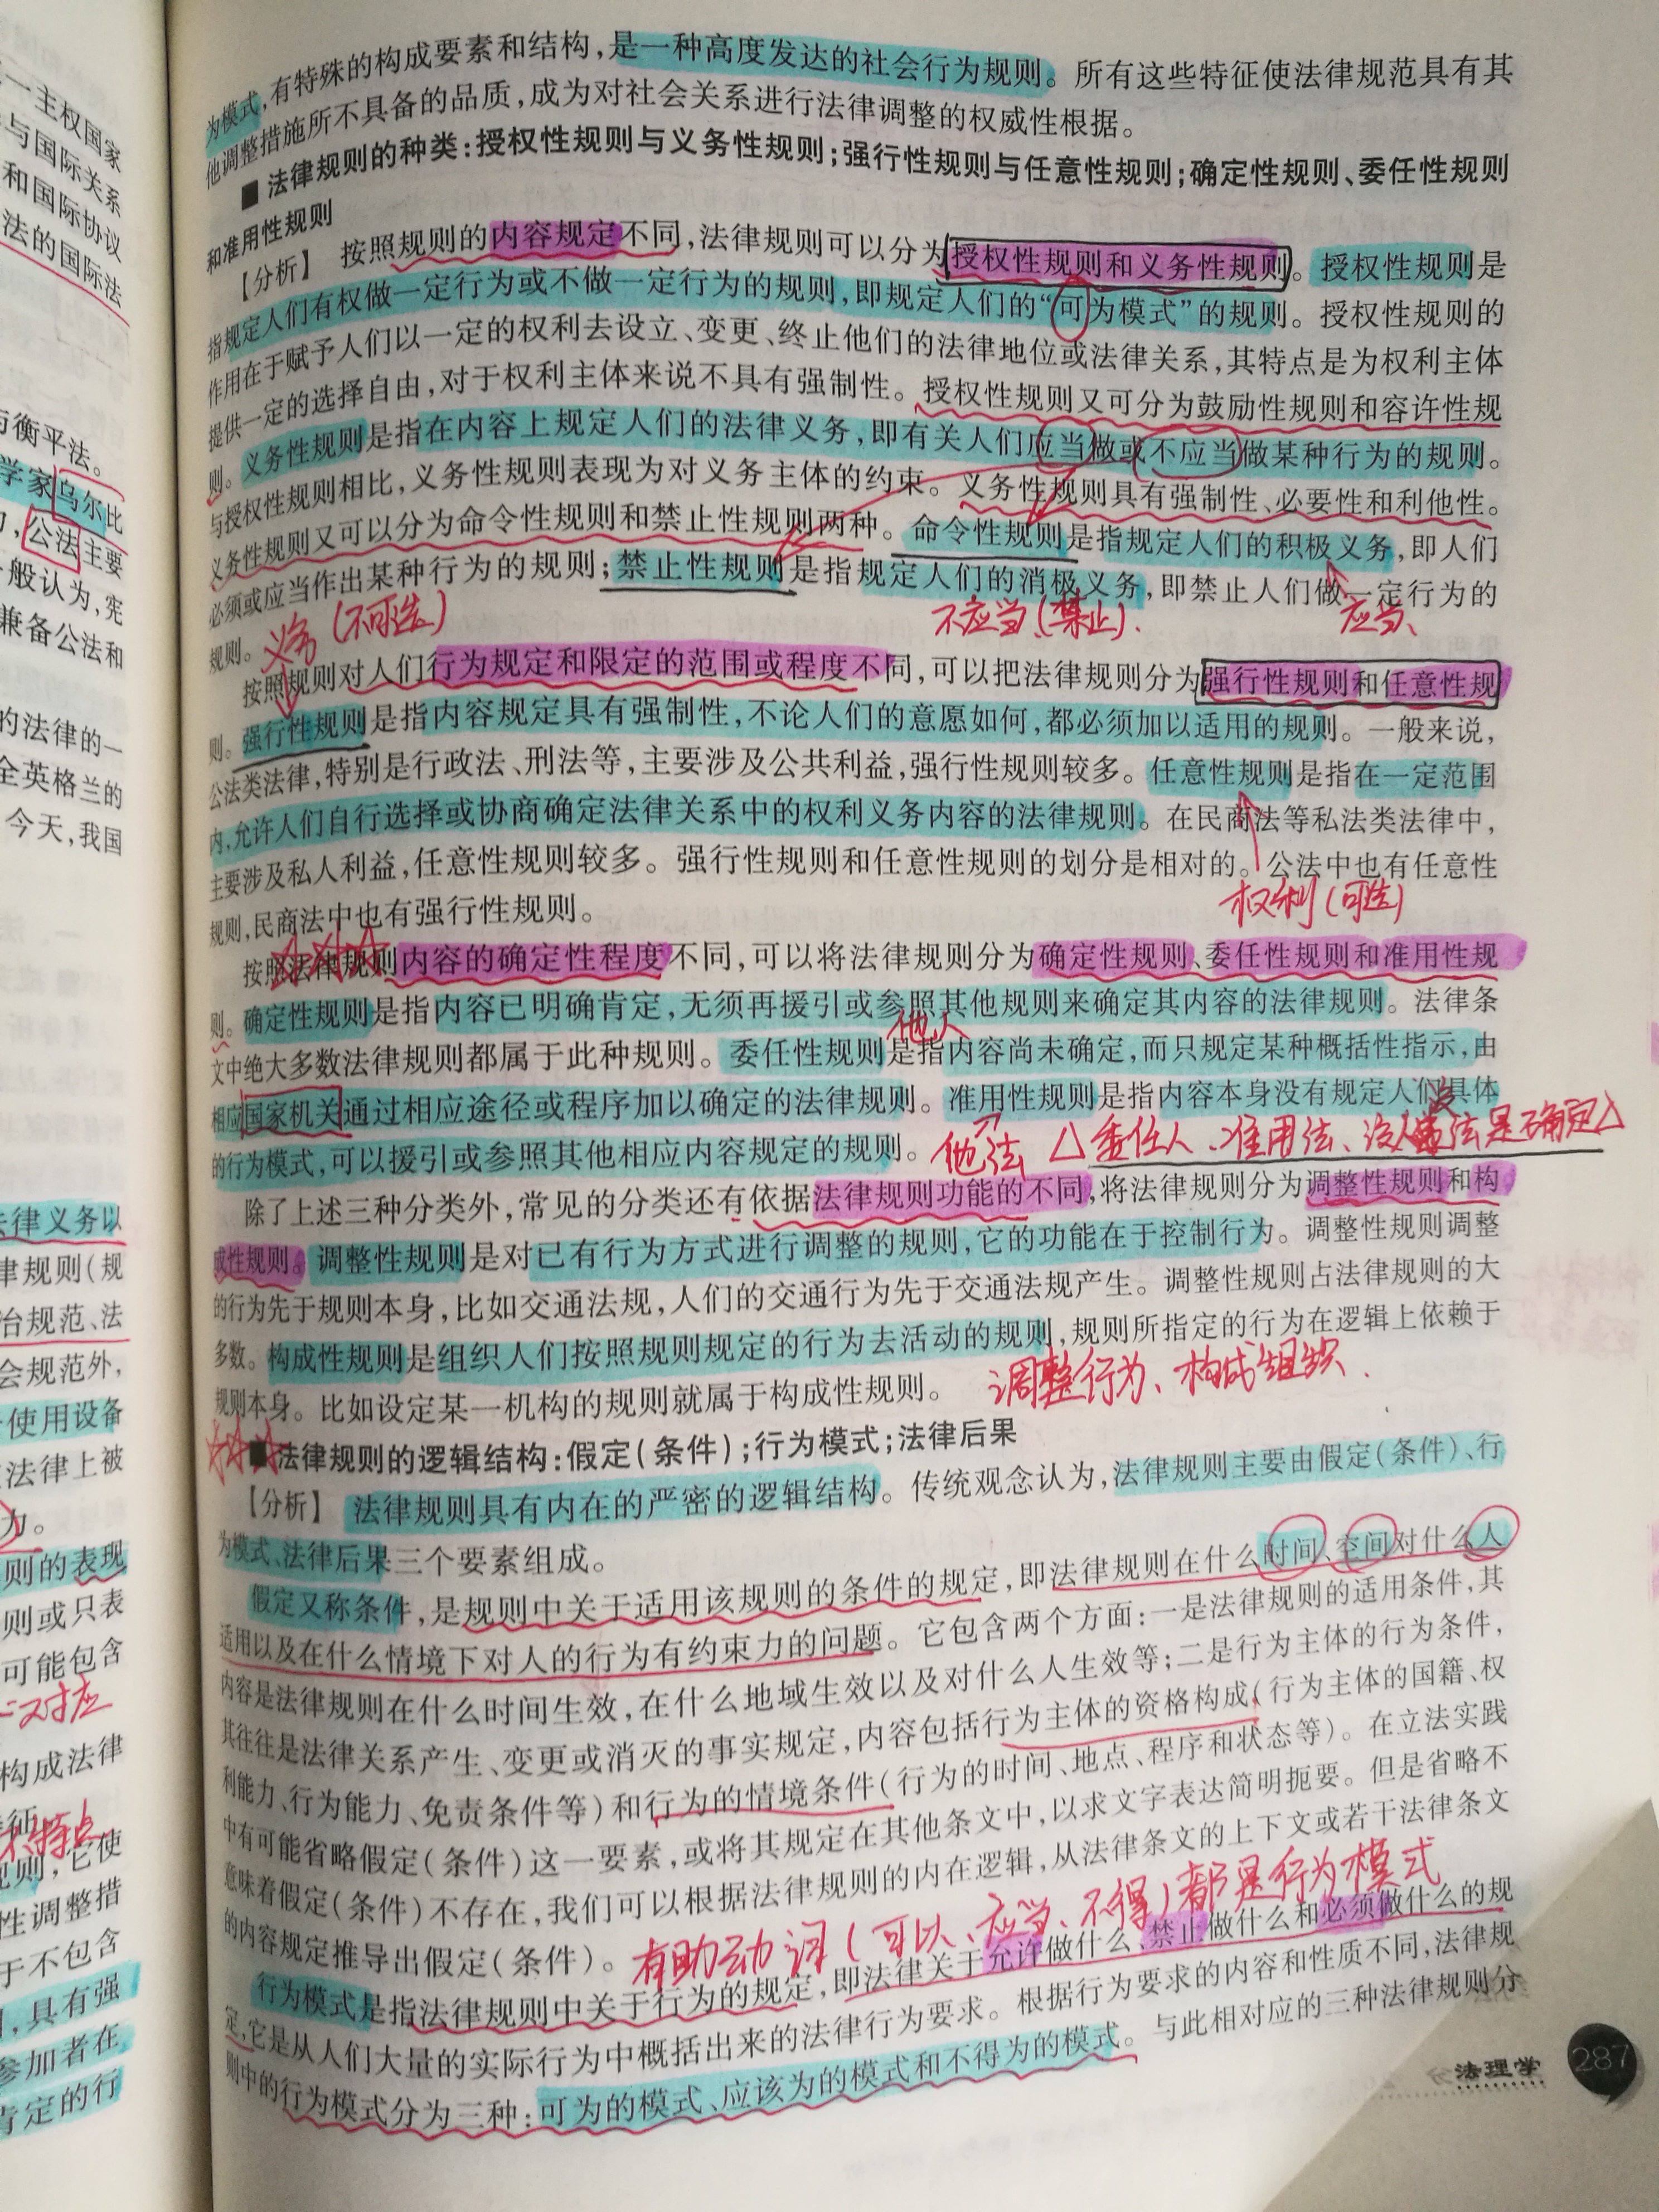 一主权国家
与国际关系
和国际协议
法的国际法
与衡平法。
学家乌尔比
公法主要
般认为,宪
兼备公法和
的法律的一
全英格兰的
今天,我国
法律义务以
律规则(规
治规范、法
会规范外,
使用设备
法律上被
力。
则的表现
则或只表
可能包含
对应
构成法律
特点
规则,它使
性调整措
于不包含
具有强
参加者在
肯定的行
为模式,有特殊的构成要素和结构,是一种高度发达的社会行为规则。所有这些特征使法律规范具有其
他调整措施所不具备的品质,成为对社会关系进行法律调整的权威性根据。
■ 法律规则的种类:授权性规则与义务性规则;强行性规则与任意性规则;确定性规则、委任性规则
和准用性规则
【分析】 按照规则的内容规定不同,法律规则可以分为授权性规则和义务性规则。授权性规则是
指规定人们有权做一定行为或不做一定行为的规则,即规定人们的“可为模式”的规则。授权性规则的
作用在于赋予人们以一定的权利去设立、变更、终止他们的法律地位或法律关系,其特点是为权利主体
提供一定的选择自由,对于权利主体来说不具有强制性。授权性规则又可分为鼓励性规则和容许性规
则。义务性规则是指在内容上规定人们的法律义务,即有关人们应当做或不应当做某种行为的规则。
与授权性规则相比,义务性规则表现为对义务主体的约束。义务性规则具有强制性、必要性和利他性。
义务性规则又可以分为命令性规则和禁止性规则两种。命令性规则是指规定人们的积极义务,即人们
必须或应当作出某种行为的规则;禁止性规则是指规定人们的消极义务,即禁止人们做一定行为的
规则。
义务(不可选)
不应当(禁止).
应当、
按照规则对人们行为规定和限定的范围或程度不同,可以把法律规则分为强行性规则和任意性规
则。强行性规则是指内容规定具有强制性,不论人们的意愿如何,都必须加以适用的规则。一般来说,
公法类法律,特别是行政法、刑法等,主要涉及公共利益,强行性规则较多。任意性规则是指在一定范围
内,允许人们自行选择或协商确定法律关系中的权利义务内容的法律规则。在民商法等私法类法律中,
主要涉及私人利益,任意性规则较多。强行性规则和任意性规则的划分是相对的。公法中也有任意性
规则,民商法中也有强行性规则。
权利(可选)
按照法律规则内容的确定性程度不同,可以将法律规则分为确定性规则、委任性规则和准用性规
则。确定性规则是指内容已明确肯定,无须再援引或参照其他规则来确定其内容的法律规则。法律条
他人
文中绝大多数法律规则都属于此种规则。委任性规则是指内容尚未确定,而只规定某种概括性指示,由
相应国家机关通过相应途径或程序加以确定的法律规则。准用性规则是指内容本身没有规定人们具体
的行为模式,可以援引或参照其他相应内容规定的规则。
他法 △委任人、准用法、没人没法是确定△
除了上述三种分类外,常见的分类还有依据法律规则功能的不同,将法律规则分为调整性规则和构
成性规则。调整性规则是对已有行为方式进行调整的规则,它的功能在于控制行为。调整性规则调整
的行为先于规则本身,比如交通法规,人们的交通行为先于交通法规产生。调整性规则占法律规则的大
多数。构成性规则是组织人们按照规则规定的行为去活动的规则,规则所指定的行为在逻辑上依赖于
规则本身。比如设定某一机构的规则就属于构成性规则。
调整行为、构成组织.
■ 法律规则的逻辑结构:假定(条件);行为模式;法律后果
【分析】 法律规则具有内在的严密的逻辑结构。传统观念认为,法律规则主要由假定(条件)、行
为模式、法律后果三个要素组成。
假定又称条件,是规则中关于适用该规则的条件的规定,即法律规则在什么时间、空间对什么人
适用以及在什么情境下对人的行为有约束力的问题。它包含两个方面:一是法律规则的适用条件,其
内容是法律规则在什么时间生效,在什么地域生效以及对什么人生效等;二是行为主体的行为条件,
其往往是法律关系产生、变更或消灭的事实规定,内容包括行为主体的资格构成(行为主体的国籍、权
利能力、行为能力、免责条件等)和行为的情境条件(行为的时间、地点、程序和状态等)。在立法实践
中有可能省略假定(条件)这一要素,或将其规定在其他条文中,以求文字表达简明扼要。但是省略不
意味着假定(条件)不存在,我们可以根据法律规则的内在逻辑,从法律条文的上下文或若干法律条文
的内容规定推导出假定(条件)。
有助动词(可以、应当、不得)都是行为模式
行为模式是指法律规则中关于行为的规定,即法律关于允许做什么、禁止做什么和必须做什么的规
定,它是从人们大量的实际行为中概括出来的法律行为要求。根据行为要求的内容和性质不同,法律规
则中的行为模式分为三种:可为的模式、应该为的模式和不得为的模式。与此相对应的三种法律规则分
法理学 287